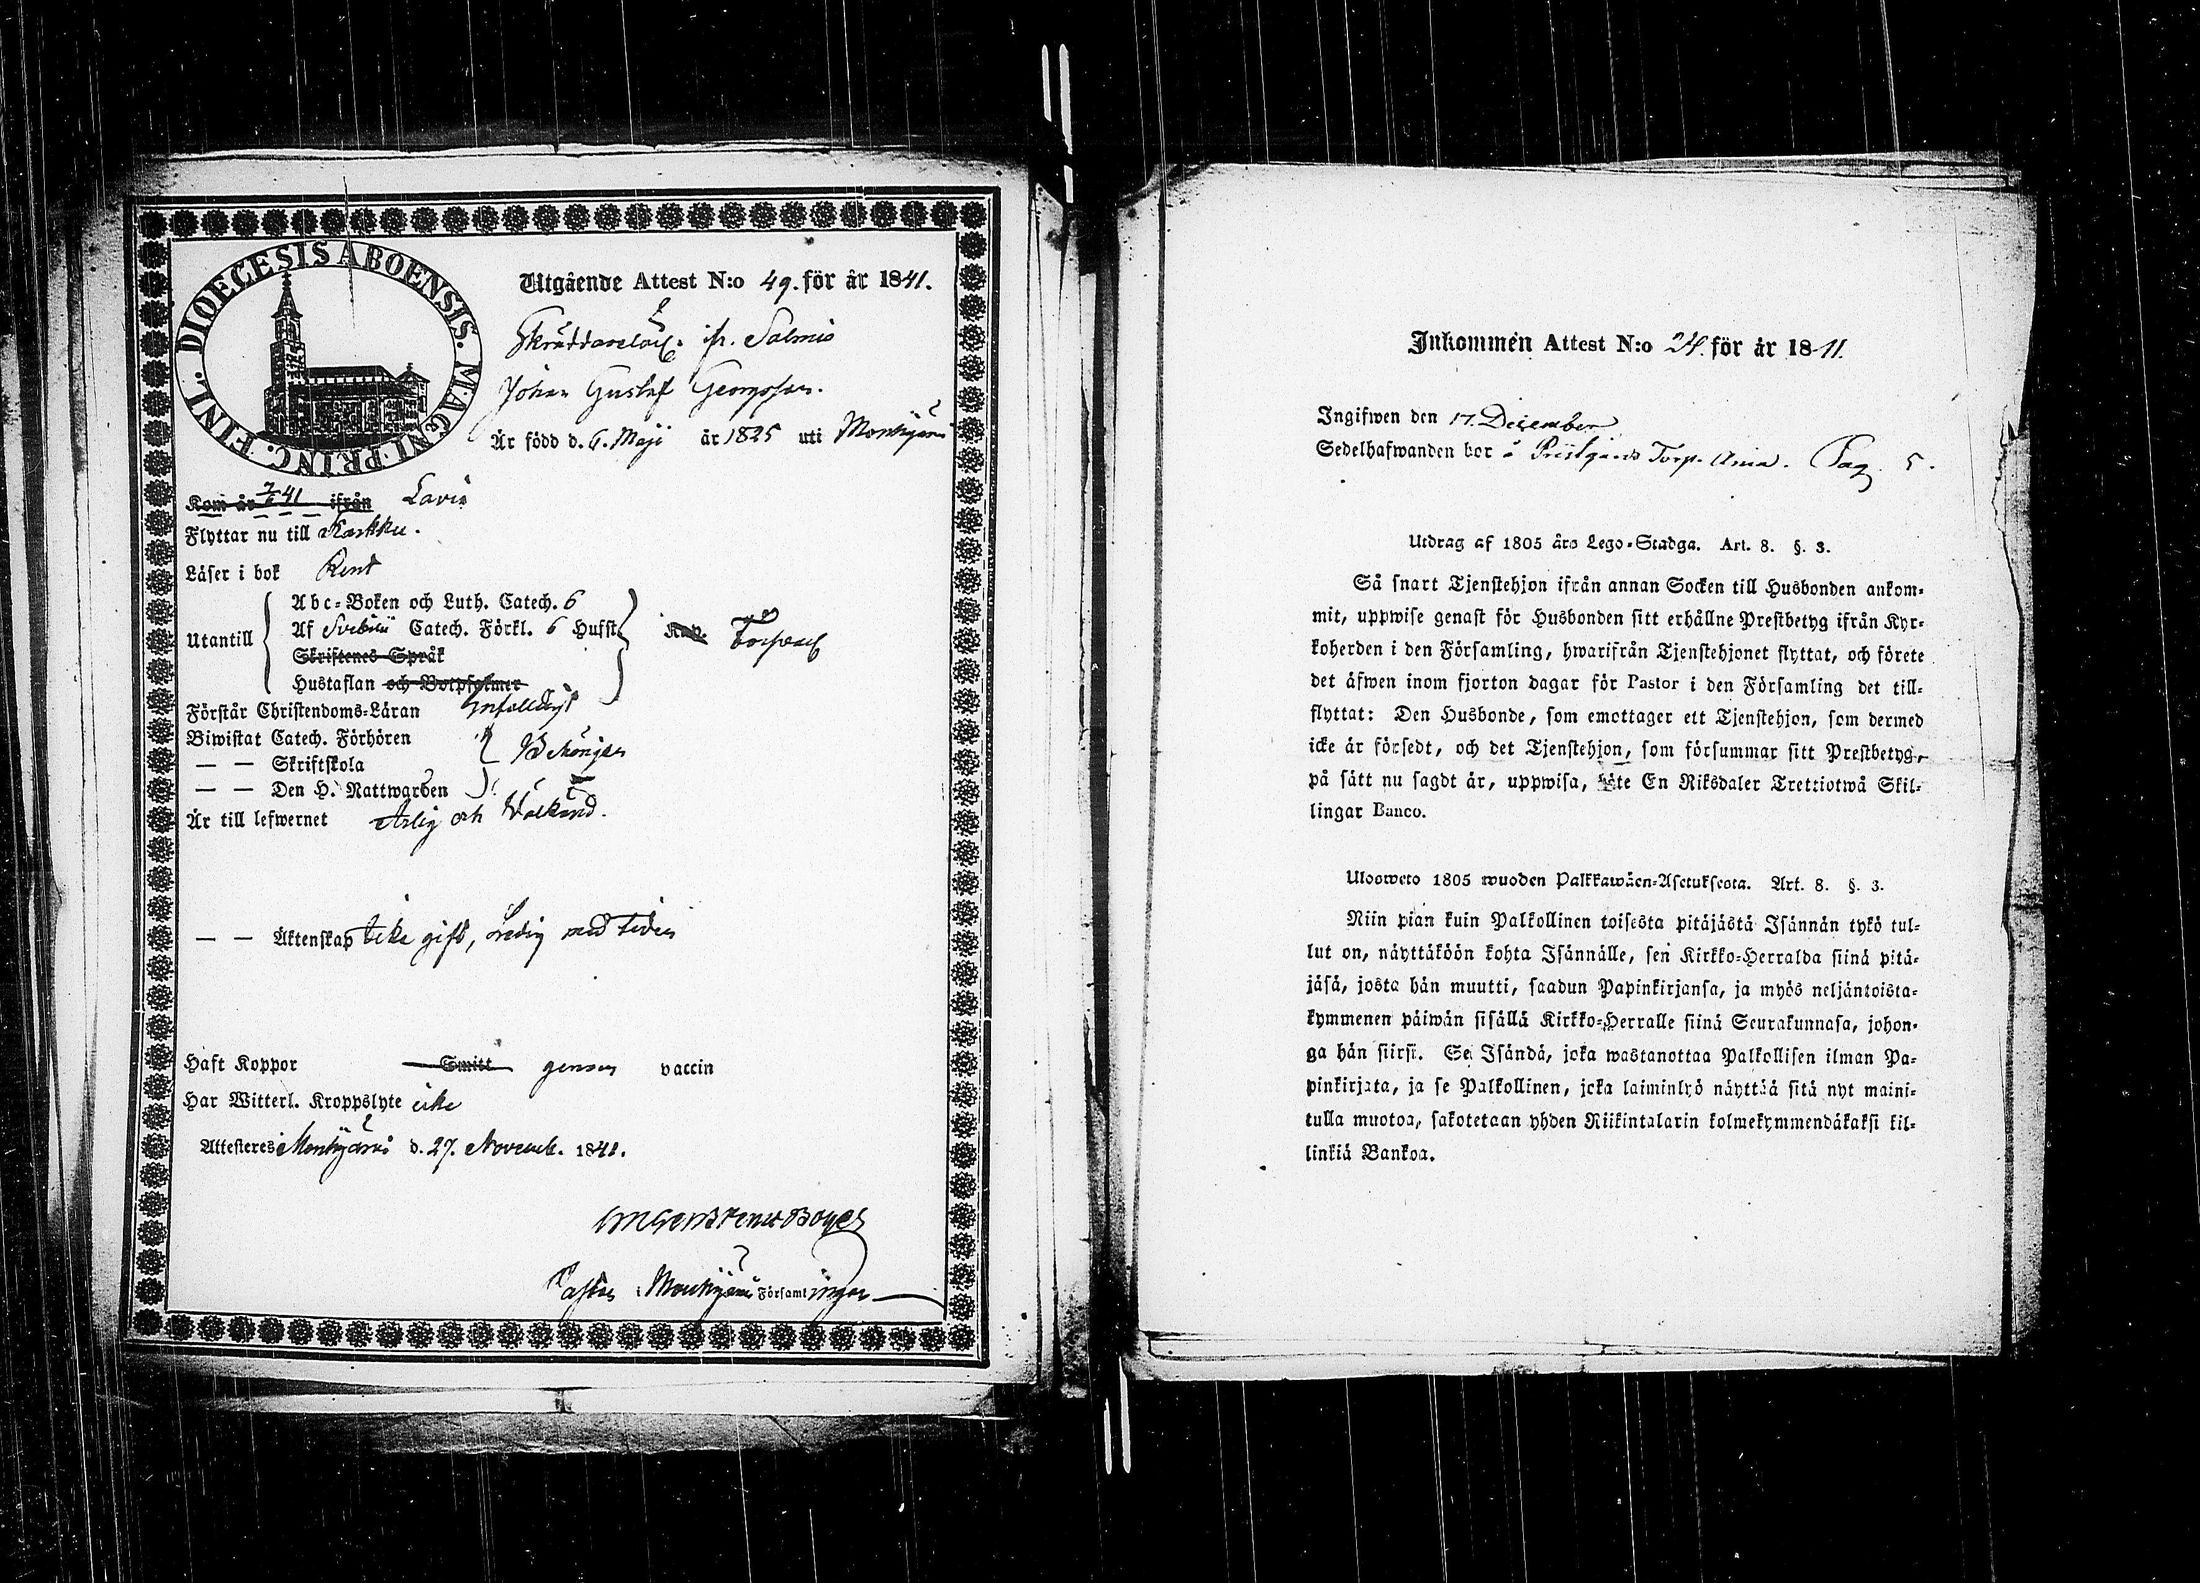 DIOECESIS ABOENSIS. MAGNI PRINC. FINL.
Utgående Attest N:o 49. för år 1841.
fr. Salmis
Johan Gustaf Georgsson.
Är född d. 6. Maji år 1825 uti Monhijärvi
Kom år 41 ifrån Lavia
Flyttar nu till Karkku.
Läser i bok Rent
Utantill
Abc-Boken och Luth. Catech. 6
Af Svebilii Catech. Förkl. 6 Hufst.
Skriftenes Språk
Hustaflan och Botpsalmer
Förstår Christendoms-Läran Enfalldigt
Biwistat Catech. Förhören
— — Skriftskola
— — Den H. Nattwarden
Är till lefwernet Ärlig och Wälkänd.
— — Äktenskap Icke gift, Ledig med tiden
Haft Koppor Smitt genom vaccin
Har Witterl. Kroppslyte icke
Attesteres Monhijärvi d. 27. Novemb. 1841.
Pastor i Monhijärvi Församlingar
Inkommen Attest N:o 24. för år 1841.
Ingifwen den 17. December
Sedelhafwanden bor å Prästgårds Torp. Pag. 5.
Utdrag af 1805 års Lego-Stadga. Art. 8. §. 3.
Så snart Tjenstehjon ifrån annan Socken till Husbonden ankom-
mit, uppwise genast för Husbonden sitt erhållne Prestbetyg ifrån Kyr-
koherden i den Församling, hwarifrån Tjenstehjonet flyttat, och förete
det äfwen inom fjorton dagar för Pastor i den Församling det till-
flyttat: Den Husbonde, som emottager ett Tjenstehjon, som dermed
icke är försedt, och det Tjenstehjon, som försummar sitt Prestbetyg,
på sätt nu sagdt är, uppwisa, böte En Riksdaler Trettiotwå Skil-
lingar Banco.
Ulosweto 1805 wuoden Palkkawäen-Asetuksesta. Art. 8. §. 3.
Niin pian kuin Palkollinen toisesta pitäjästä Isännän tykö tul-
lut on, näyttäköön kohta Isännälle, sen Kirkko-Herralda siinä pitä-
jäsä, josta hän muutti, saadun Papinkirjansa, ja myös neljäntoista-
kymmenen päiwän sisällä Kirkko-Herralle siinä Seurakunnasa, johon-
ga hän siirsi. Se Isändä, joka wastanottaa Palkollisen ilman Pa-
pinkirjata, ja se Palkollinen, joka laiminlyö näyttää sitä nyt maini-
tulla muotoa, sakotetaan yhden Riikintalarin kolmekymmendäkaksi kil-
linkiä Bankoa.